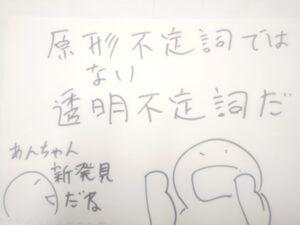 原形不定詞では
ない
透明不定詞だ
あんちゃん
新発見
だね